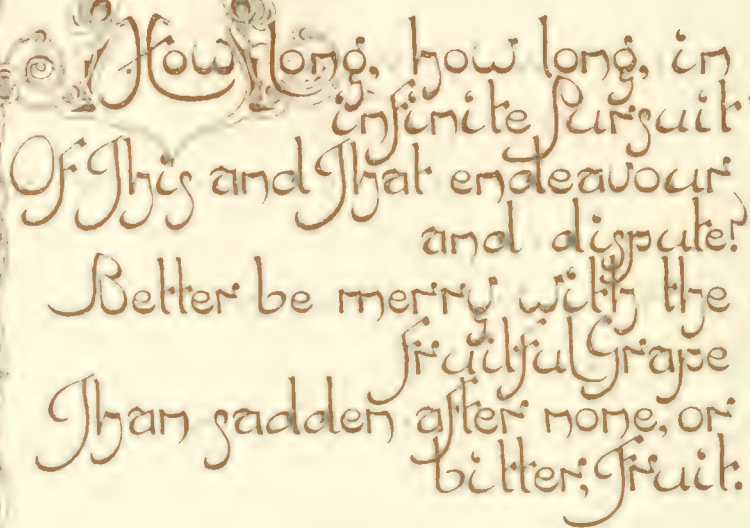 How long, how long, in
infinite Pursuit
Of This and That endeavour
and dispute?
Better be merry with the
fruitful Grape
Than sadden after none, or
bitter, Fruit.